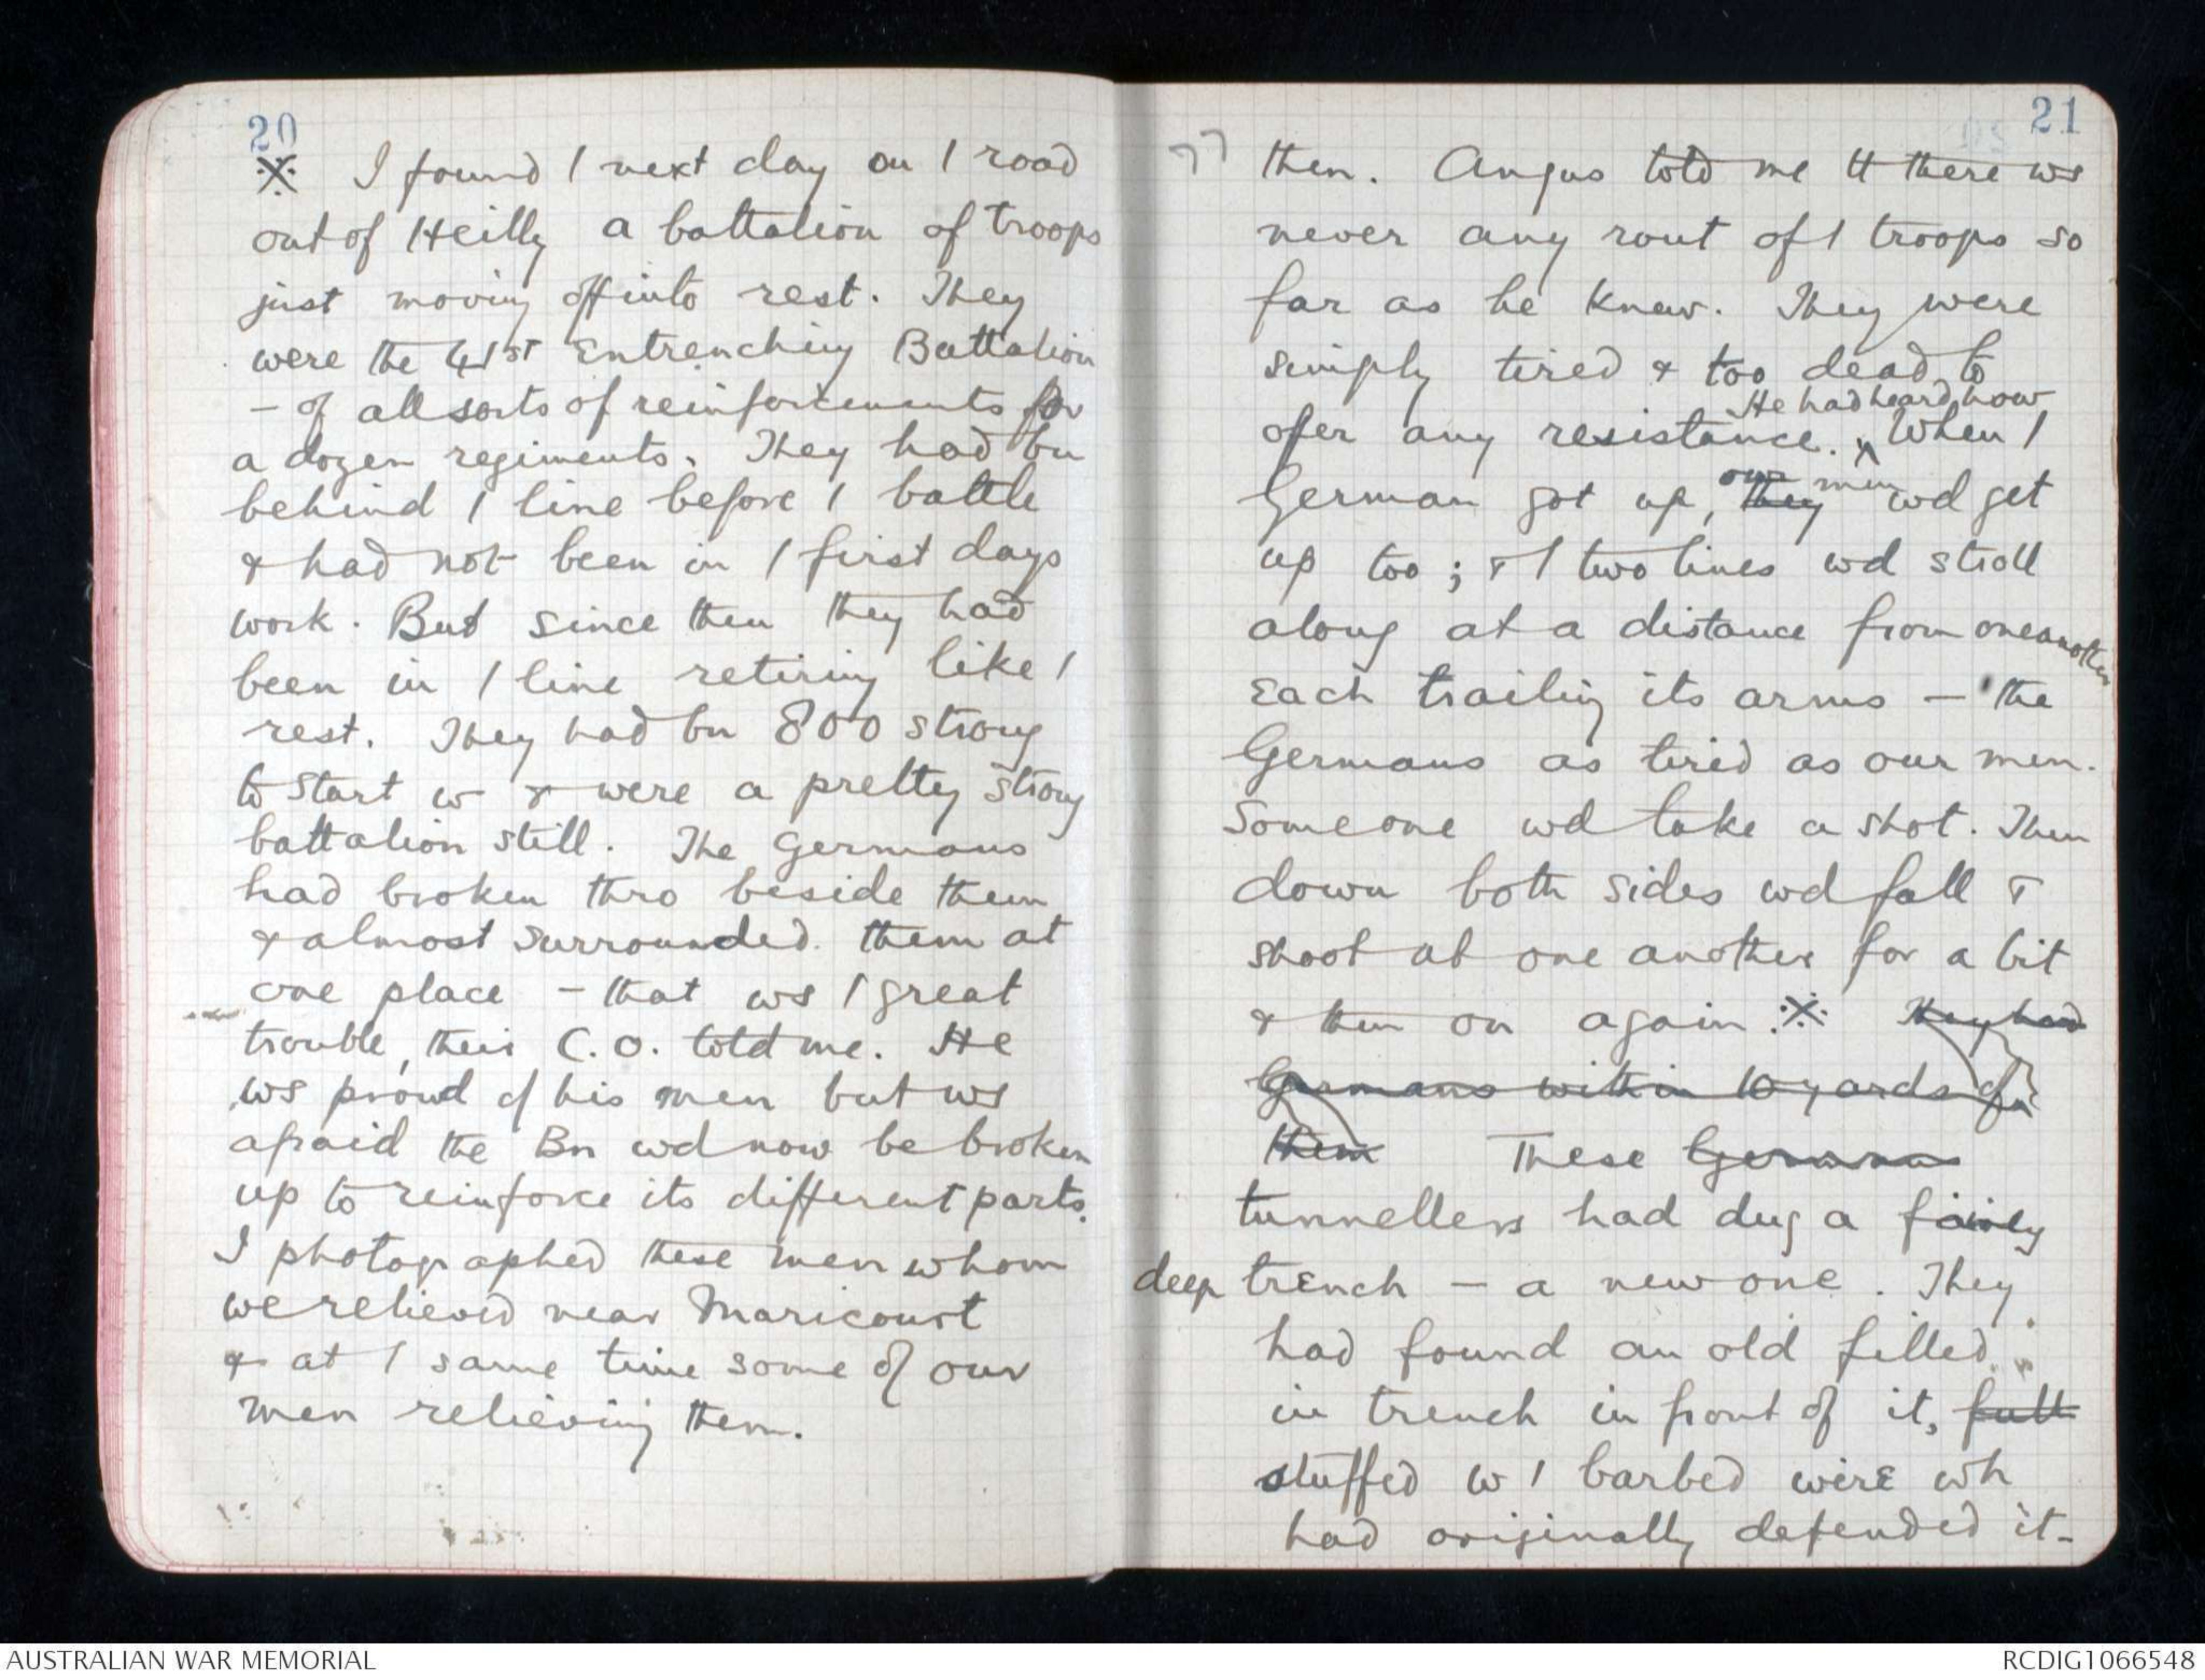 20
※ I found / next day on / road
out of Heilly a battalion of troops
just moving off into rest. They
were the 41st Entrenching Battalion
- of all sorts of reinforcements for
a dozen regiments. They had bn
behind / line before / battle
& had not been in / first days
work. But since then they had
been in / line retiring like /
rest. They had bn 800 strong
to start w & were a pretty strong
battalion still. The Germans
had broken thro beside them
& almost surrounded them at
one place - that ws / great
trouble, their C.O. told me. He
ws proud of his men but ws
afraid the Bn wd now be broken
up to reinforce its different parts.
I photographed these men whom
we relieved near Maricourt
& at / same time some of our
men relieving them.
21
then. Angus told me tt there ws
never any rout of / troops so
far as he knew. They were
simply tired & too dead to
He had heard how
offer any resistance. ^ When /
our men
German got up, they wd get
up too; & / two lines wd stroll
along at a distance from one another
Each trailing its arms - the
Germans as tired as our men.
Someone wd take a shot. Then
down both sides wd fall &
shoot at one another for a bit
& then on again.※ They had
Germans within 10 yards of
them These Germans
tunnellers had dug a fairly
deep trench - a new one. They
had found an old filled
in trench in front of it, full
stuffed w / barbed wire wh
had originally defended it-
AUSTRALIAN WAR MEMORIAL
RCDIG1066548